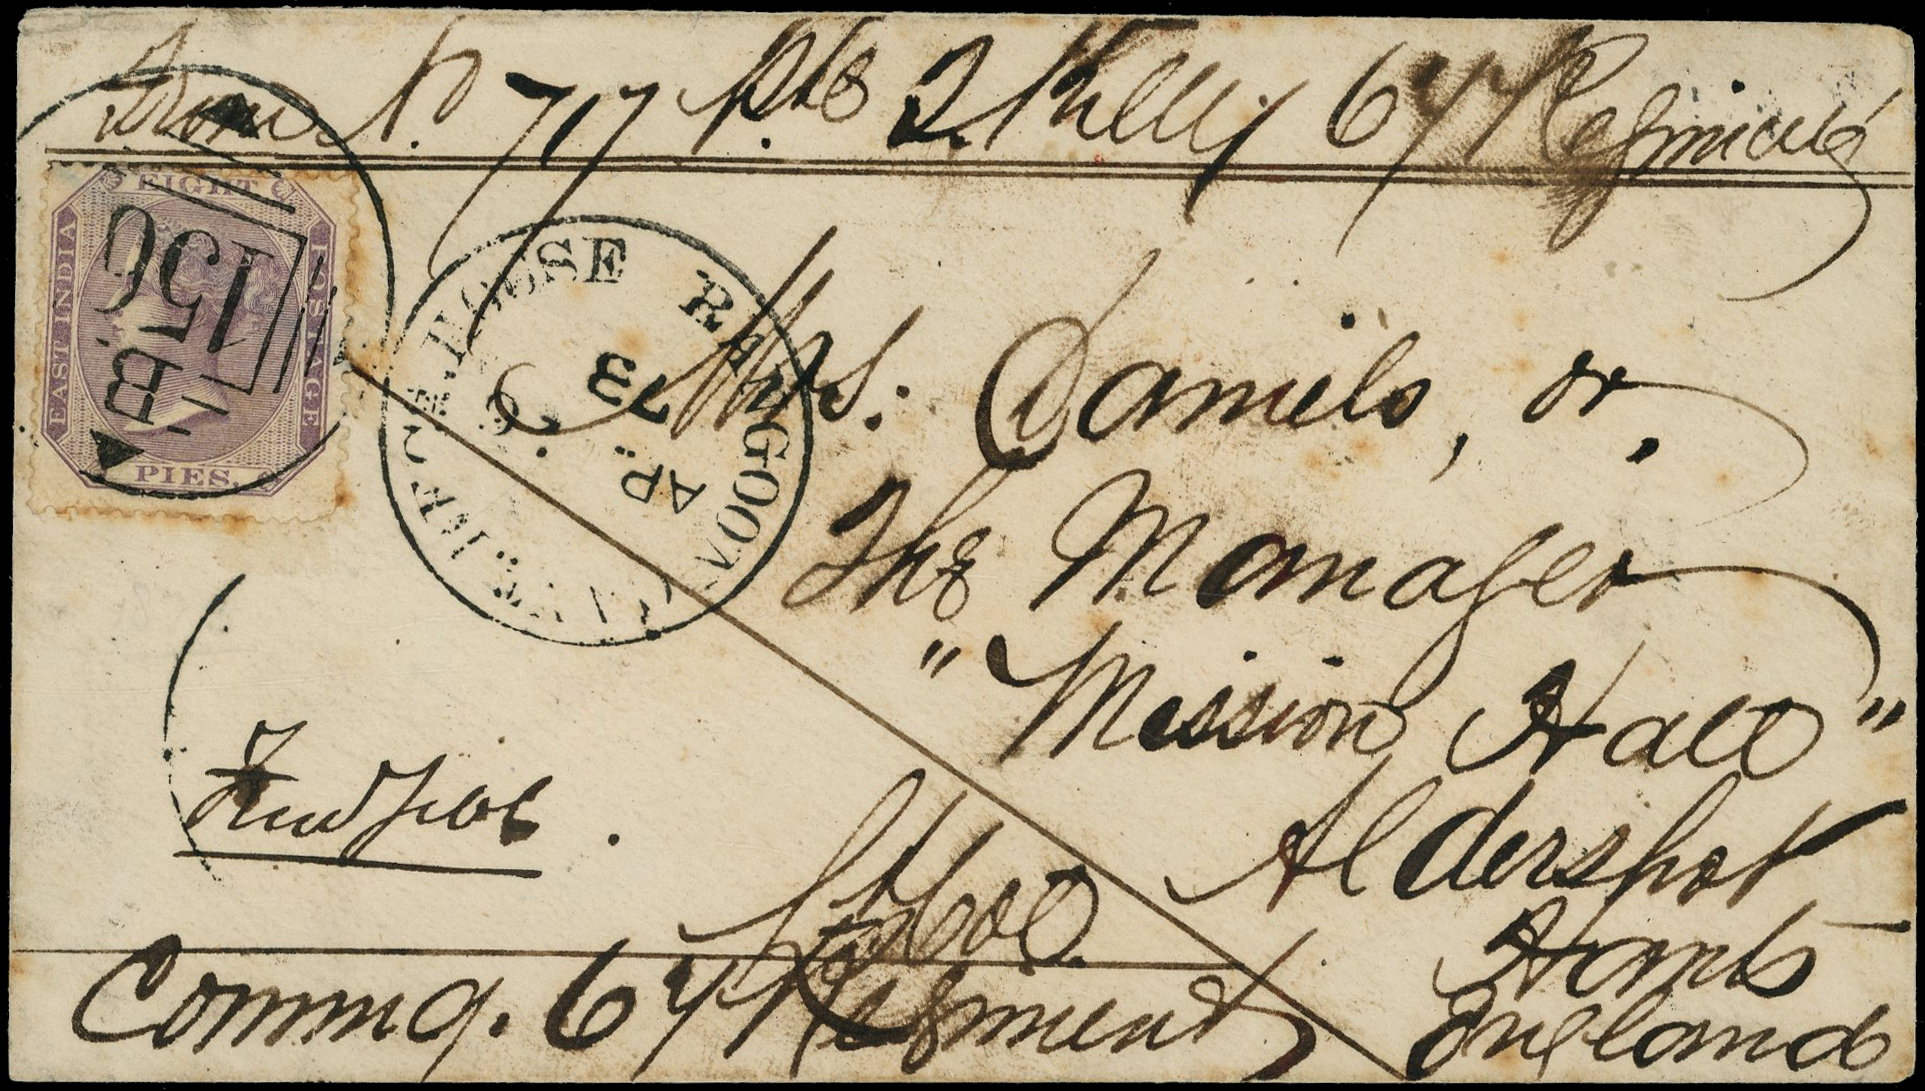 From No. 717 Pte J. Kelly 67 Regiment
EIGHT
EAST INDIA
POSTAGE
PIES.
B
156
HOUSE RANGOON
AP. 73
Mrs: Daniels, or,
The Manager
"Mission Hall"
Aldershot
Hants
England
Lt Col.
Commg. 67 Regiment